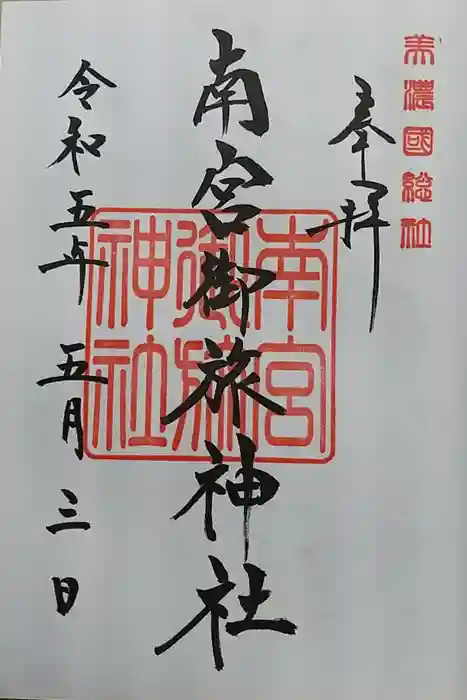 美濃國総社
奉拝
南宮御旅神社
南宮御旅神社
令和五年五月三日